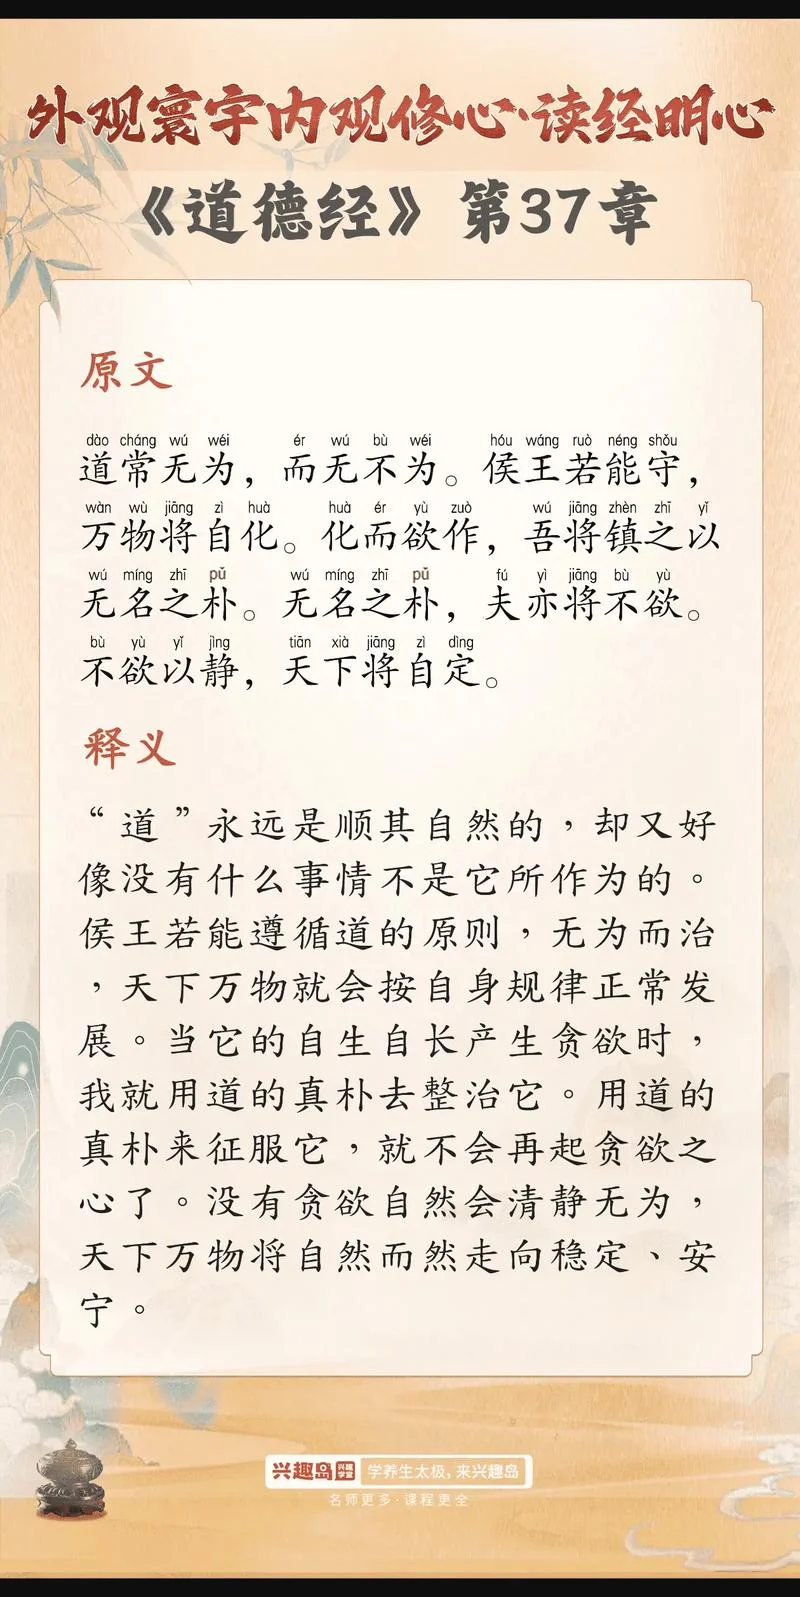 外观寰宇内观修心·读经明心
《道德经》第37章
原文
dào cháng wú wéi ér wú bù wéi hóu wáng ruò néng shǒu
道常无为，而无不为。侯王若能守，
wàn wù jiāng zì huà huà ér yù zuò wú jiāng zhèn zhī yǐ
万物将自化。化而欲作，吾将镇之以
wú míng zhī pǔ wú míng zhī pǔ fú yì jiāng bù yù
无名之朴。无名之朴，夫亦将不欲。
bù yù yǐ jìng tiān xià jiāng zì dìng
不欲以静，天下将自定。
释义
“道”永远是顺其自然的，却又好
像没有什么事情不是它所作为的。
侯王若能遵循道的原则，无为而治
，天下万物就会按自身规律正常发
展。当它的自生自长产生贪欲时，
我就用道的真朴去整治它。用道的
真朴来征服它，就不会再起贪欲之
心了。没有贪欲自然会清静无为，
天下万物将自然而然走向稳定、安
宁。
兴趣岛 兴趣学堂 学养生太极，来兴趣岛
名师更多·课程更全